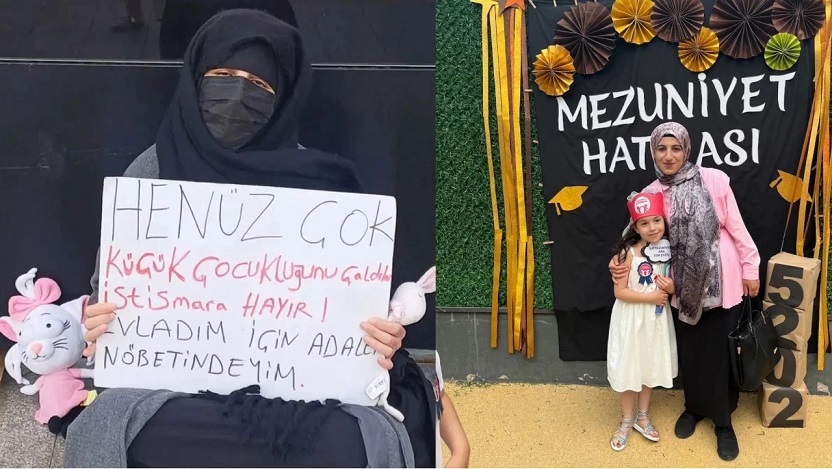 HENÜZ ÇOK
KÜÇÜK ÇOCUKLUĞUNU
İSTİSMARA HAYIR!
EVLADIM İÇİN
NÖBETİNDEYİM.
MEZUNİYET
HATIRASI
5202